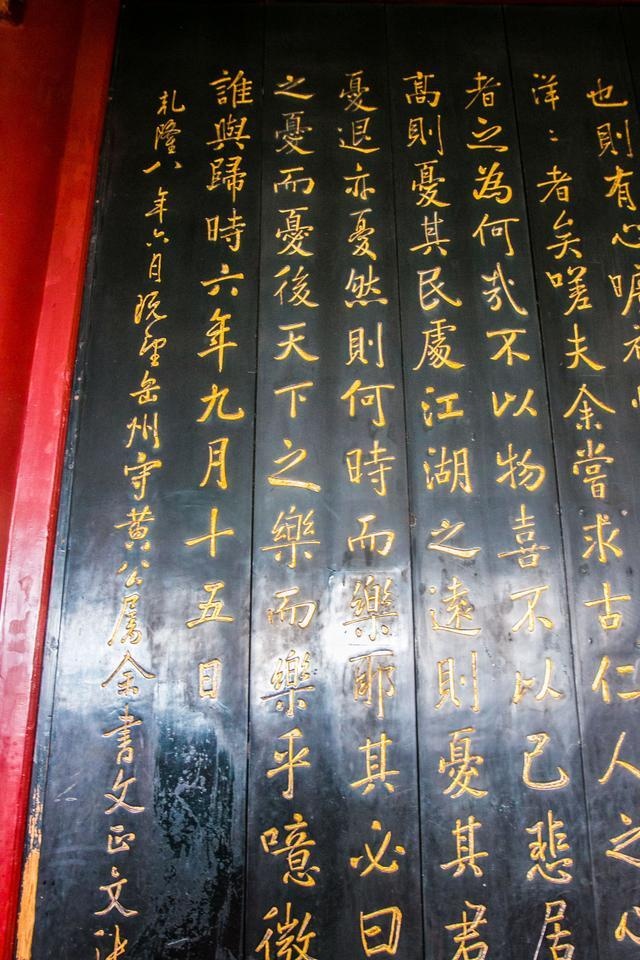 也則有心曠
洋〻者矣嗟夫余嘗求古仁人之心
者之為何哉不以物喜不以己悲居
高則憂其民處江湖之遠則憂其君
憂退亦憂然則何時而樂耶其必曰
之憂而憂後天下之樂而樂乎噫微
誰與歸時六年九月十五日
乹隆八年六月既望岳州守黃公屬余書文正文